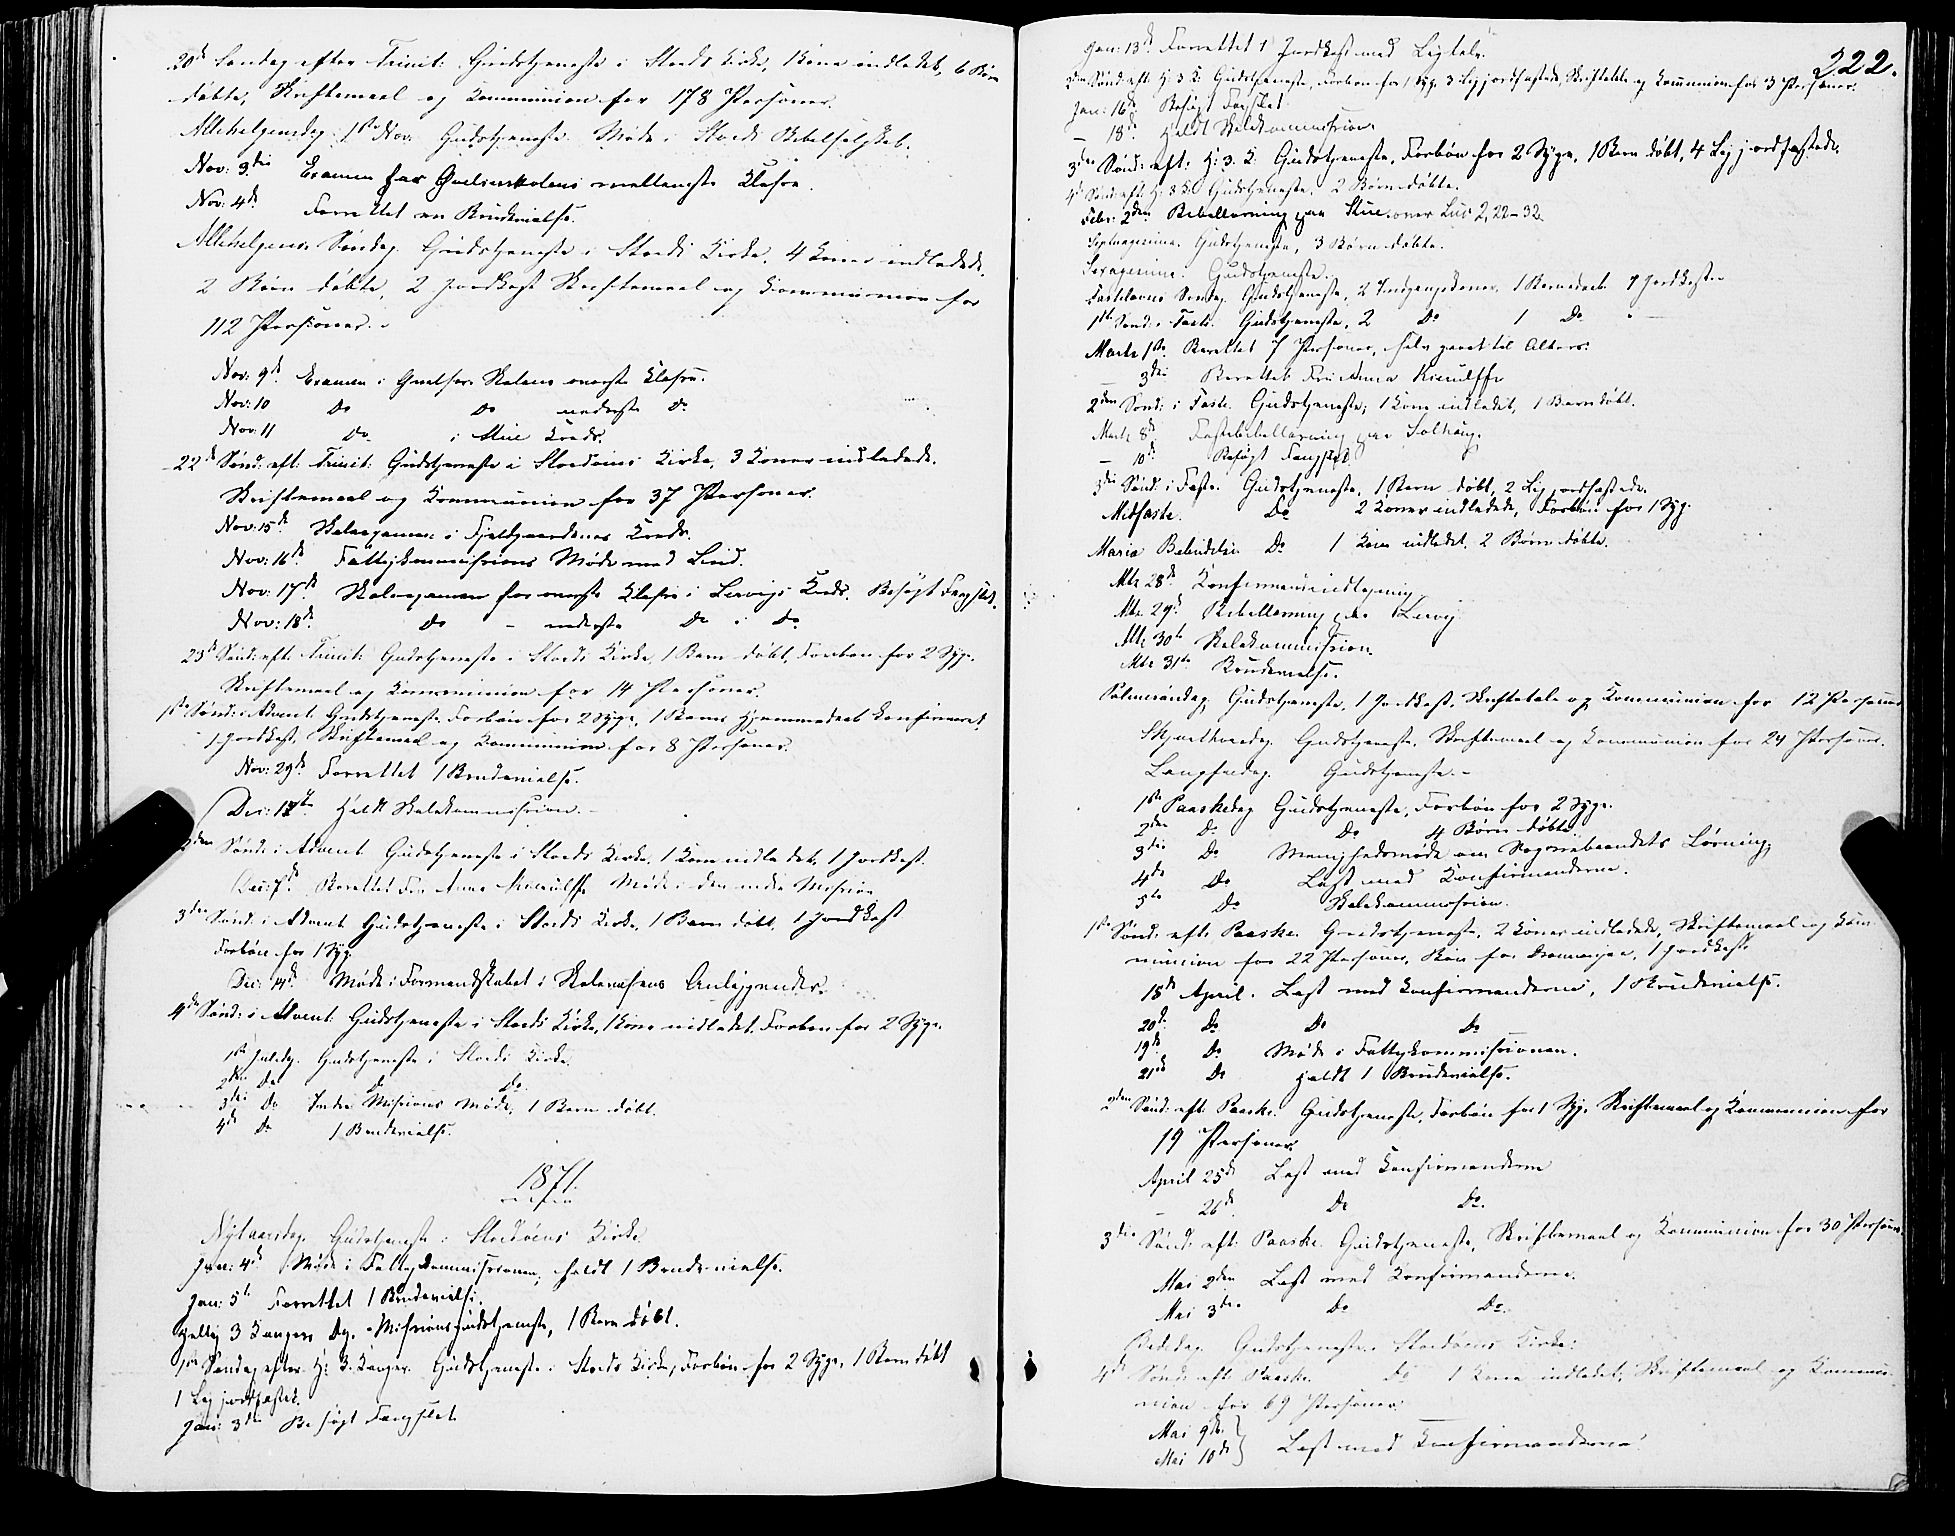 20de Søndag efter Trinit: Gudstjeneste i Stords Kirke, Kone indledet, 6 Børn
døbte, Skriftemaal og Kommunion for 178 Personer.
Allehelgensdag 1ste Nov. Gudstjeneste. Møde i Stords Bibelselskab.
Nov: 3die Examen for skolens mellemste Klasse.
Nov: 4de Forrettet en Brudevielse.
Allehelgens Søndag. Gudstjeneste i Stords Kirke. 4 Koner indledede,
2 Børn døbte, 2 Jordkast Skriftemaal og Kommunion for
112 Personer.
Nov: 9de Examen i Skolens øverste Klasse.
Nov: 10 Do Do nederste Do
Nov: 11 Do i Kreds.
22de Sønd: eft: Trinit: Gudstjeneste i Stordøens Kirke, 3 Koner indledede.
Skriftemaal og Kommunion for 37 Personer.
Nov: 15de Skoleexamen i Kreds.
Nov: 16de Fattigkommissions Møde med Lind.
Nov: 17de Skoleexamen for øverste Klasse i Lervigs Kreds. Besøgt Fængslet.
Nov: 18de Do – nederste Do i Do
23de Sønd: eft: Trinit: Gudstjeneste i Stords Kirke, 1 Barn døbt, Forbøn for 2 Syge.
Skriftemaal og Kommunion for 14 Personer.
1ste Sønd: i Advent Gudstjeneste Forbøn for 2 Syge, 1 Barns Hjemmedaab konfirmeret,
1 Jordkast, Skriftemaal og Kommunion for 8 Personer.
Nov: 29de Forrettet 1 Brudevielse.
Dec: Holdt Skolekommission.
2den Sønd: i Advent Gudstjeneste i Stords Kirke, 1 Kone indledet, 1 Jordkast.
Dec: 7de Berettet Fru Anna Møde i den indre Mission
3die Sønd: i Advent Gudstjeneste i Stords Kirke, 1 Barn døbt, 1 Jordkast
Forbøn for 1 Syg.
Dec: 14de Møde i Formandskabet i Skolevæsens Anliggender.
4de Sønd: i Advent Gudstjeneste i Stords Kirke, 1 Kone indledet. Forbøn for 2 Syge.
1ste Juledg. Gudstjeneste i Stords Kirke.
2den Do Do Do
3die Do Indre Missions Møde, 1 Barn døbt.
4de Do 1 Brudevielse.
1871.
Nytaarsdag. Gudstjeneste i Stordøens Kirke
Jan: 4de Møde i Fattigkommissionen, holdt 1 Brudevielse.
Jan: 5te Forrettet 1 Brudevielse.
Hellig 3 Kongers Dg. Missionsgudstjeneste, 1 Barn døbt.
1ste Søndag efter H: 3 Konger Gudstjeneste i Stords Kirke, Forbøn for 2 Syge, 1 Barn døbt
1 Lig jordfæstet.
Jan: 3die Besøgt Fængslet
222.
Jan: 13de Forrettet 1 Jordkast med Ligtale.
2den Sønd: eft: H: 3 K: Gudstjeneste, Forbøn for 1 Syg. 3 Lig jordfæstede, Skriftetale og Kommunion for 3 Personer.
Jan: 16de Besøgt Fængslet
– 18de Holdt Skolekommission.
3die Sønd: eft: H: 3. K: Gudstjeneste, Forbøn for 2 Syge, 1 Barn døbt, 4 Lig jordfæstede.
4de Sønd: eft: H: 3 K: Gudstjeneste, 2 Børn døbte.
Febr: 2den Bibellæsning paa over Luc 2, 22–32.
Septuagesima. Gudstjeneste, 3 Børn døbte.
Sexagesima: Gudstjeneste.
Fastelavns Søndag. Gudstjeneste, 2 Indgangskoner 1 Barnedaab 1 Jordkast
1ste Sønd: i Faste. Gudstjeneste, 2 Do 1 Do
Marts 1ste Berettet 7 Personer, selv gaaet til Alters.
– 3die Berettet Fru Anna
2den Sønd: i Faste. Gudstjeneste, 1 Kone indledet, 1 Barn døbt.
Marts 8de Fastebibellæsning paa
– 10de Besøgt Fængslet
3die Sønd: i Faste. Gudstjeneste, 1 Barn døbt, 2 Lig jordfæstede.
Midfaste. Do 2 Koner indledede, Forbøn for 1 Syg.
Maria Bebudelse Do 1 Kone indledet, 2 Børn døbte.
Mts 28de
Mts. 29de Bibellæsning paa Lervig
Mts 30te Skolekommission.
Mts 31te Brudevielse.
Palmesøndag Gudstjeneste, 1 Jordkast, Skriftetale og Kommunion for 12 Personer
Skjærthorsdag. Gudstjeneste. Skriftemaal og Kommunion for 24 Personer.
Langfredag. Gudstjeneste.
1ste Paaskedag Gudstjeneste, Forbøn for 2 Syge.
2den Do Do 4 Børn døbte
3die Do Menighedsmøde om Sognebaandets Løsning.
4de Do Læst med Konfirmanderne.
5te Do Skolekommission.
1ste Sønd: eft: Paaske. Gudstjeneste, 2 Koner indledede, Skriftemaal og Kom-
munion for 22 Personer, Bøn for Dronningen, 1 Jordkast
18de April. Læst med Konfirmanderne, 1 Brudevielse.
20de Do Do Do
19de Do Møde i Fattigkommissionen.
21de Do Holdt 1 Brudevielse.
2den Sønd: eft: Paaske. Gudstjeneste, Forbøn for 1 Syg. Skriftemaal og Kommunion for
19 Personer.
April 25de Læst med Konfirmanderne
– 26de Do Do.
3die Sønd: eft: Paaske. Gudstjeneste, Skriftemaal og Kommunion for 30 Personer
Mai 2den Læst med Konfirmanderne.
Mai 3die Do Do.
Bededag. Gudstjeneste i Stordøens Kirke.
4de Sønd: eft: Paaske. Do 1 Kone indledet, Skriftemaal og Kommu-
nion for 69 Personer.
Mai 9de
Mai 10de } Læst med Konfirmanderne.